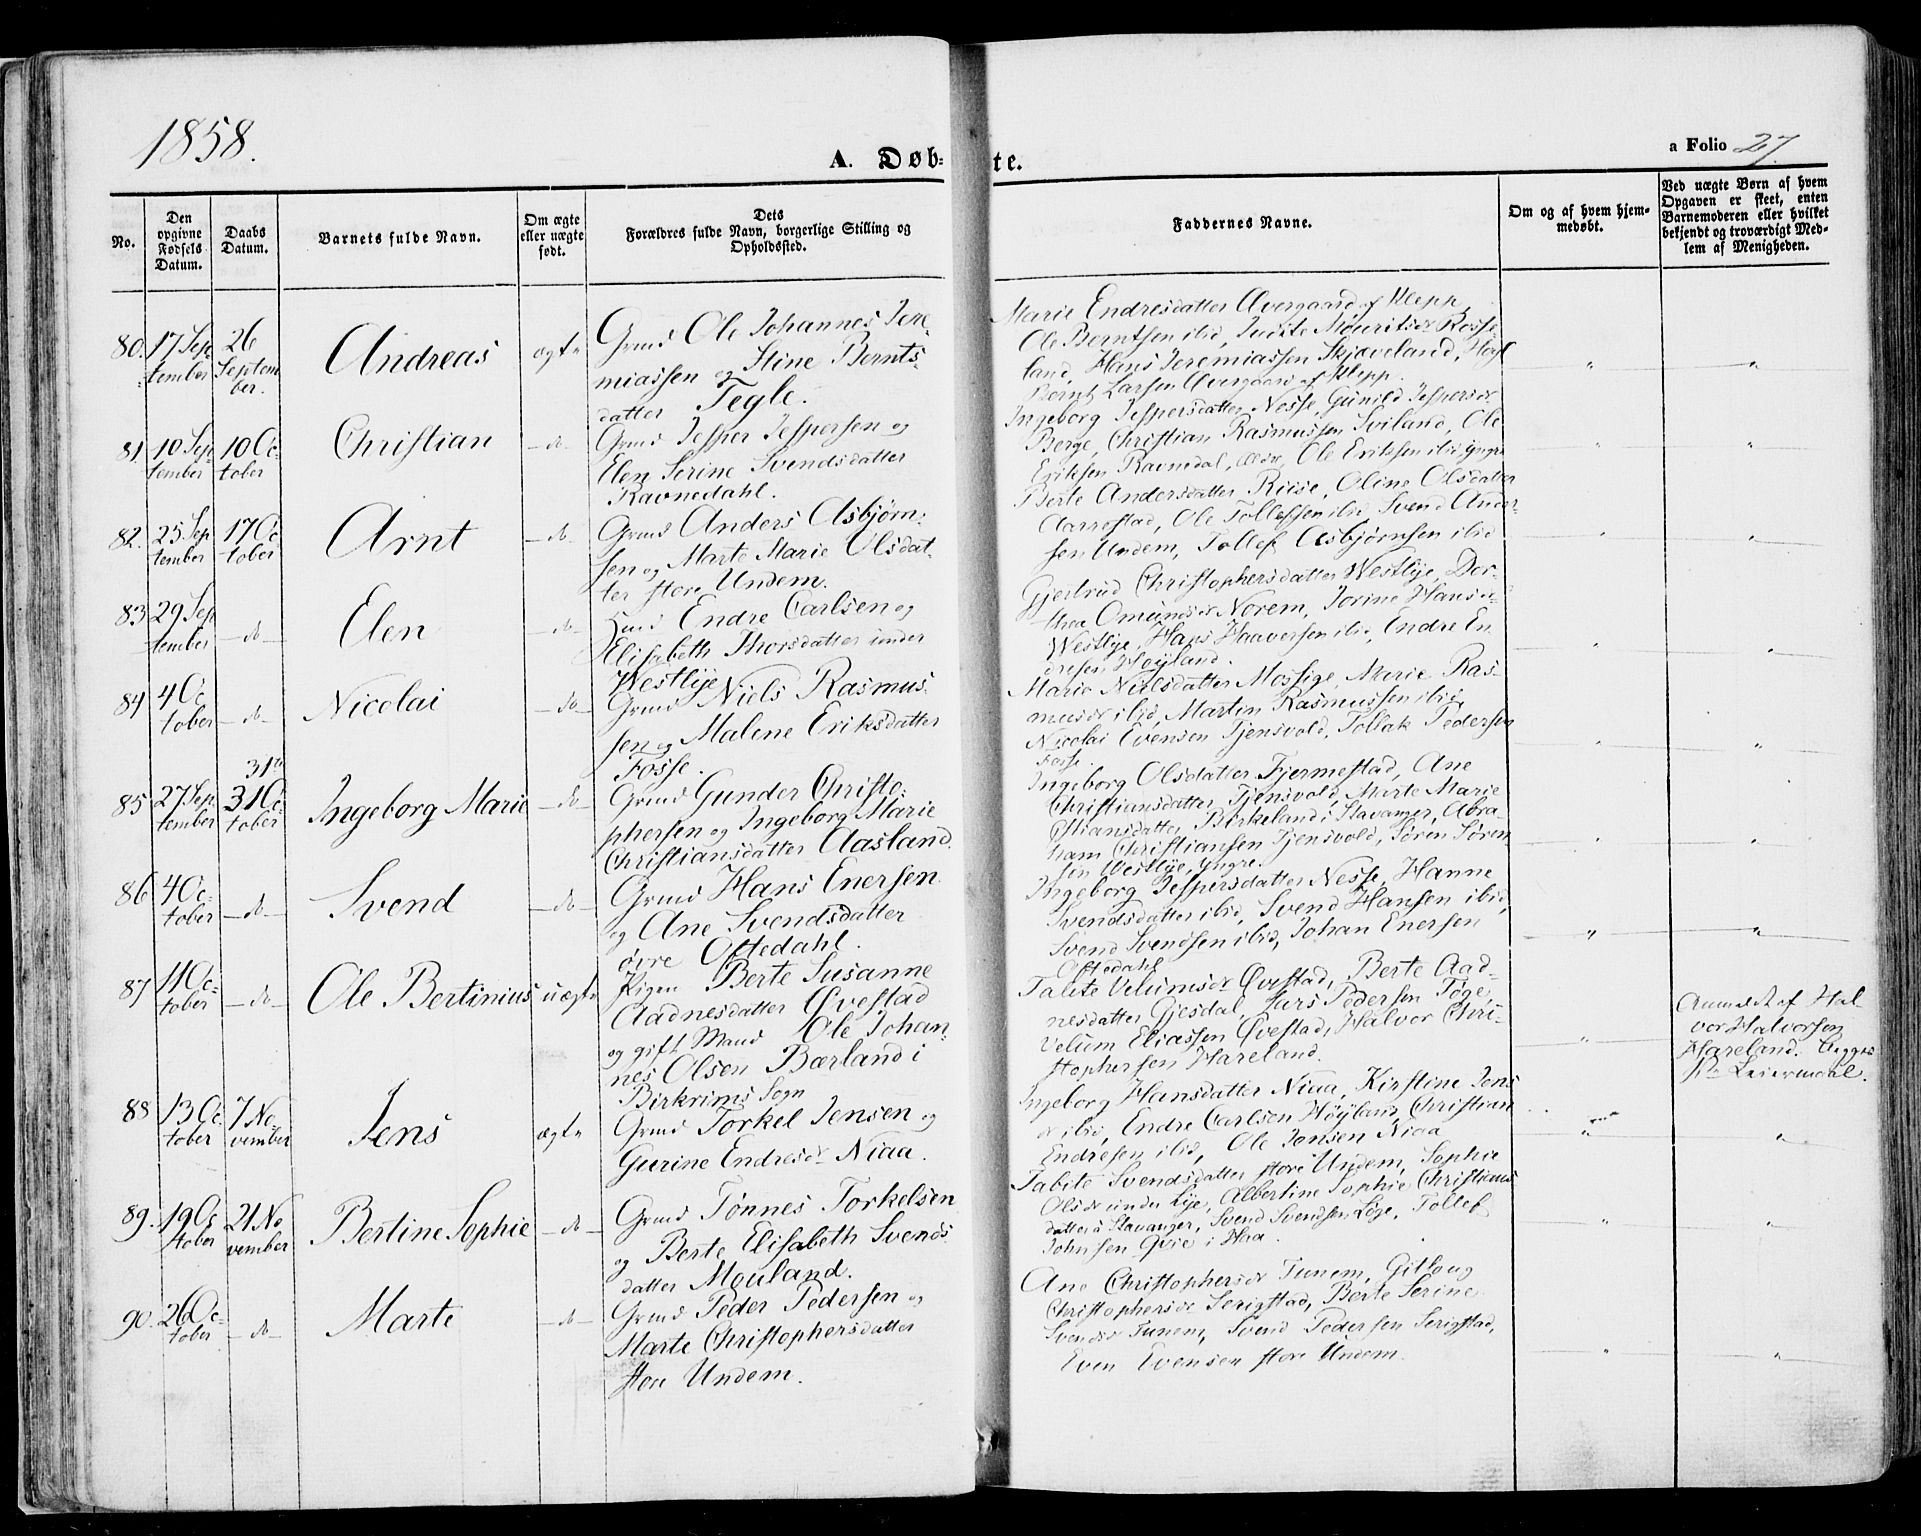 1858.
A. Døb-
te.
a Folio 27.
No.
Den opgivne Fødsels Datum.
Daabs Datum.
Barnets fulde Navn.
Om ægte eller uægte født.
Dets Forældres fulde Navn, borgerlige Stilling og Opholdssted.
Faddernes Navne.
Om og af hvem hjemmedøbt.
Ved uægte Børn af hvem Opgaven er skeet, enten Barnemoderen eller hvilket bekjendt og troværdigt Medlem af Menigheden.
80. 17 Sep-
tember
26
Septem
ber.
Andreas
ægte
Grmd Ole Johannes Jere
miassen og Stine Bernts-
datter Tegle.
Marie Endresdatter Avergaard af Klepp,
Ole Berntsen ibid, Judite Mouritsdr Rosse-
land, Hans Jeremiassen Skjæveland, Høyl
Bernt Larsen Avergaard af Klepp.
" "
81 10 Sep-
tember
10 Oc-
tober
Christian
- do -
Grmd Jesper Jespersen og
Elen Serine Svendsdatter
Ravnedahl.
Ingeborg Jespersdatter Nesse, Gunild Jespersdr
Berge, Christian Rasmussen Sviland, Ole
Eriksen Ravnedal, ældre, Ole Eriksen ibid yngre
" "
82. 25 Sep
tember
17 Oc
tober
Arnt
- do -
Grmd Anders Asbjørn-
sen og Marte Marie Olsdat-
ter store Undem.
Berte Andersdatter Riise, Oline Olsdatter
Aarrestad, Ole Tollefsen ibid Svend Ander-
sen Undem, Tollef Asbjørnsen ibid
" "
83 29 Sep
tember
- do -
Elen
- do -
Huusmd Endre Carlsen og
Elisabeth Thorsdatter under
Westlye
Gjertrud Christophersdatter Westlye, Dor-
thea Omundsdr Norem, Jorine Hansdr
Westlye, Hans Haaversen ibid, Endre En
dresen Høyland.
" "
84 4 Oc
tober
- do -
Nicolai
- do -
Grmd Niels Rasmus-
sen og Malene Eriksdatter
Fosse.
Marie Nielsdatter Mossige, Marie Ras-
musdr ibid, Marten Rasmussen ibid,
Nicolai Evensen Tjensvold, Tollak Pedersen
Fosse.
" "
85 27 Sep
tember
31te
31 Oc-
tober
Ingeborg Marie
- do -
Grmd Gunder Christo-
phersen og Ingeborg Marie
Christiansdatter Aasland.
Ingeborg Olsdatter Fjermestad, Ane
Christiansdatter Tjensvold, Marte Marie
Stiansdatter, Birkeland i Stavanger, Abra-
ham Christiansen Tjensvold, Søren Søren
sen Westlye, yngre.
" "
86 4 Oc-
tober
- do -
Svend
- do -
Grmd Hans Enersen
og Ane Svendsdatter
øvre Oftedahl.
Ingeborg Jespersdatter Nesse, Hanne
Svendsdatter ibid, Svend Hansen ibid,
Svend Svendsen ibid, Johan Enersen
Oftedahl
" "
87 11 Oc-
tober
- do -
Ole Bertinius
uægte
Pigen Berte Susanne
Aadnesdatter Øvestad
og gift Mand Ole Johan-
nes Olsen Bærland i
Birkrims Sogn
Talite Velumsdr Øvestad, Berte Aad-
nesdatter Gjesdal, Lars Pedersen Tøge,
Velum Eliassen Øvestad, Halvor Chri-
stophersen Hareland.
"
Anmeldt af Hal
vor Halvorsen
Hareland.
88 13 Oc
tober
7 No-
vember
Jens
ægte
Grmd Torkel Jensen og
Gurine Endresdr Niaa.
Ingeborg Hansdatter Niaa, Kirstine Jens
dr ibid, Endre Carlsen Høyland, Christian
Endresen ibid, Ole Jonsen Niaa
" "
89. 19 Oc
tober
21 No
vember
Bertine Sophie
- do -
Grmd Tønnes Torkelsen
og Berte Elisabeth Svends
datter Mouland.
Tabite Svendsdatter store Undem, Sophie
Olsdr under Lye, Albertine Sophie Christians
datter i Stavanger, Svend Svendsen Løge, Tollef
Johnsen Qvie i Haa.
" "
90. 26 Oc-
tober
- do -
Marte
- do -
Grmd Peder Pedersen og
Marte Christophersdatter
store Undem.
Ane Christophersdr Tunem, Gitlaug
Christophersdr Serigstad, Berte Serine
Svendsdr Tunem, Svend Pedersen Serigstad,
Even Evensen store Undem.
" "